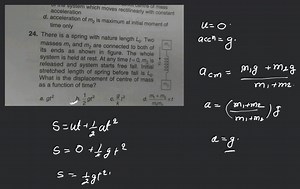 the system which moves rectilinearly with constant
acceleration
d. acceleration of m₂ is maximum at initial moment of
time only
24. There is a spring with nature length L₀. Two
masses m₁ and m₂ are connected to both of
its ends as shown in figure. The whole
system is held at rest. At any time t = 0, m₂ is
released and system starts free fall. Initial
stretched length of spring before fall is L₀.
What is the displacement of centre of mass
as a function of time?
a. gt²
S = ut + ½at²
S = 0 + ½gt²
S = ½gt²
u = 0
accⁿ = g.
a_cm = m₁g + m₂g / m₁ + m₂
a = (m₁ + m₂ / m₁ + m₂) g
a = g.